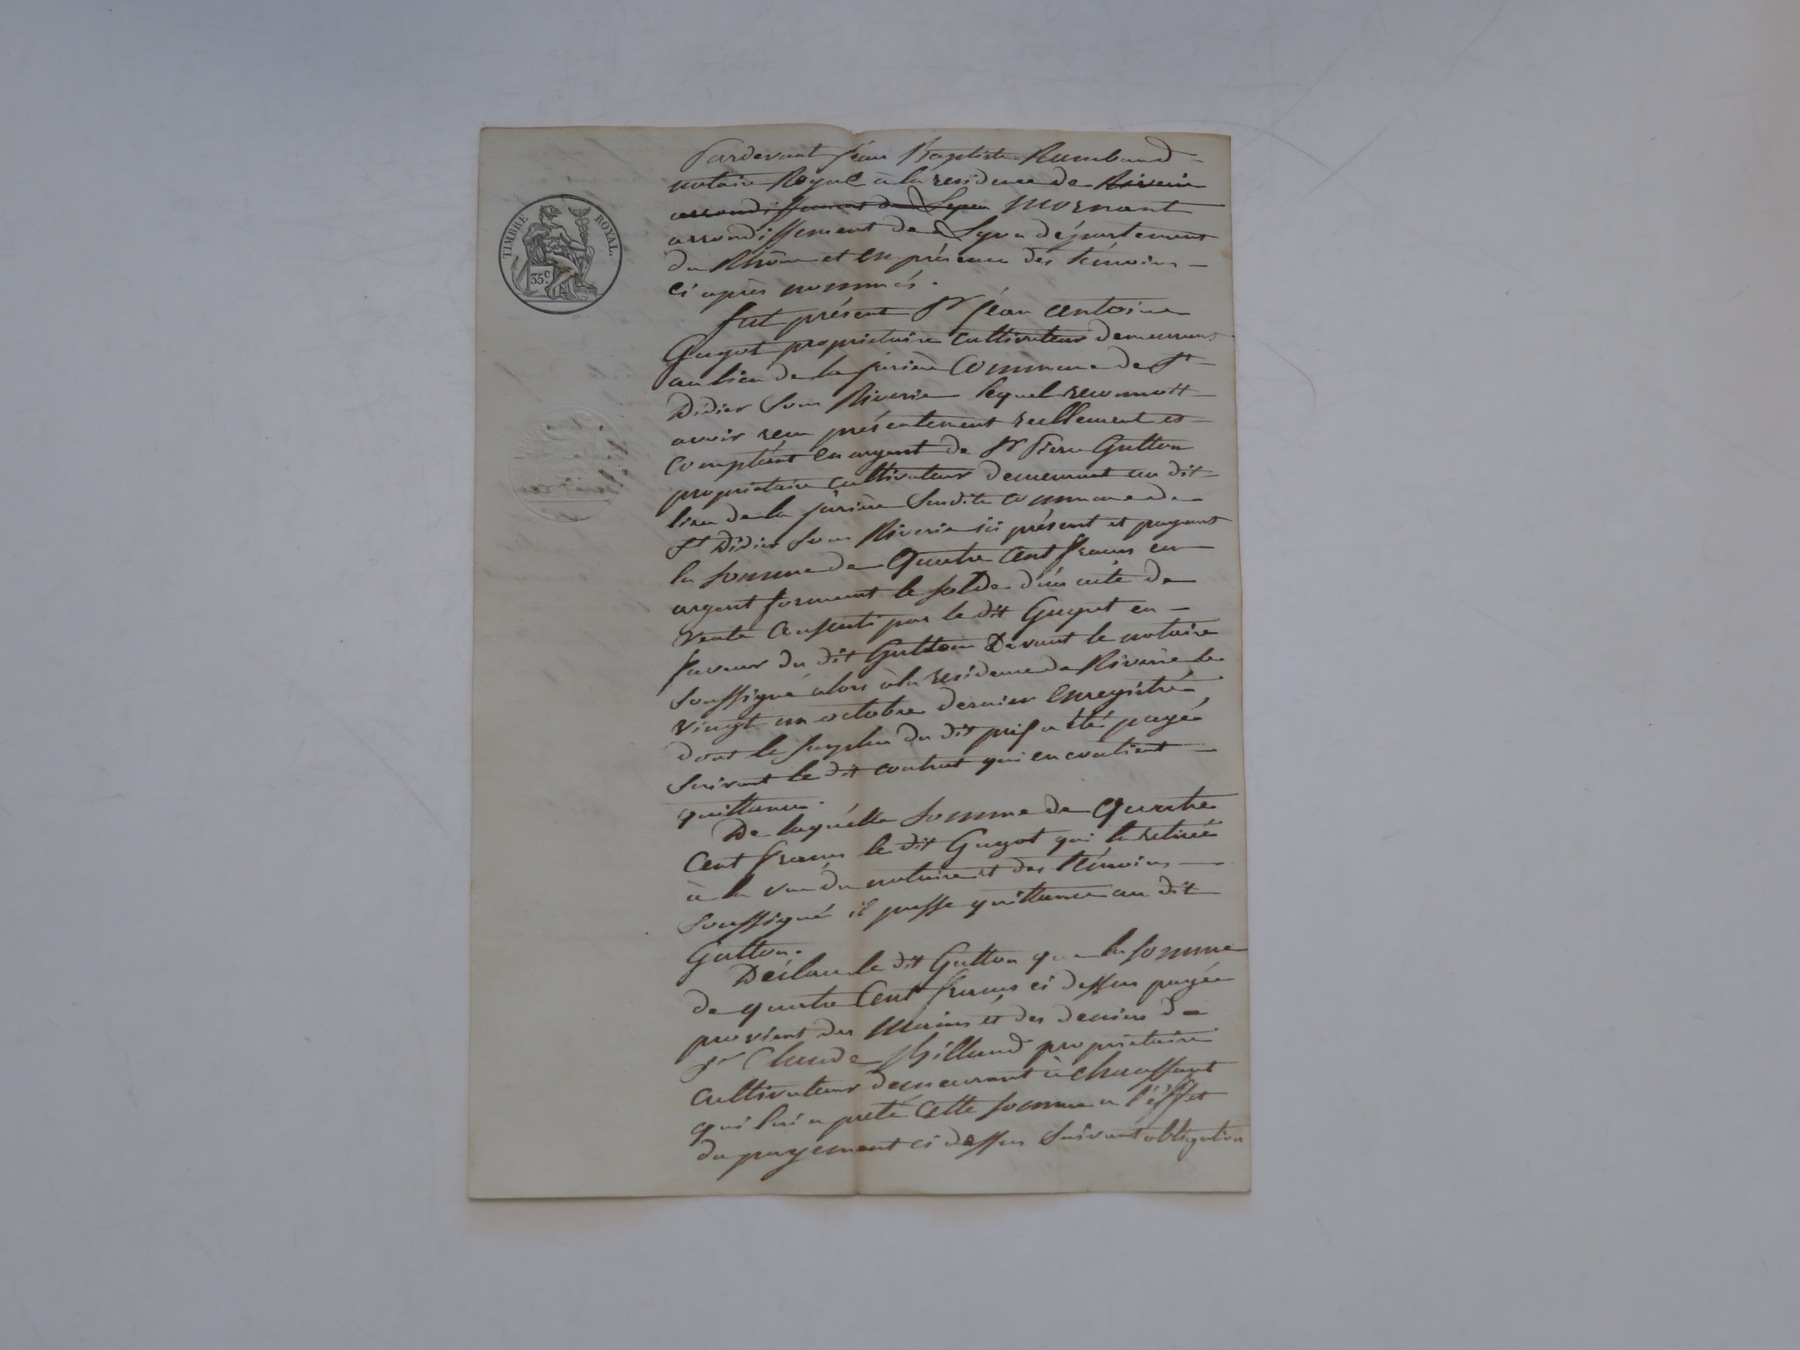 TIMBRE ROYAL.
35c
Pardevant Jéan Baptiste Rambaud
notaire Royal à la residence de Riverie
arrondissement de Lyon mornant
arrondissement de Lyon département
du Rhône et en présence des témoins
ci après nommés.
fut présent Sr jéan antoine
Guyot propriétaire cultivateur demeurant
au lieu de la Commune de St
Didier Sous Riverie lequel reconnoît
avoir reçu présentement réellement et
comptant en argent de Sr Pierre Gutton
propriétaire cultivateur demeurant au dit
lieu de la Susdite commune de
St Didier Sous Riverie ici présent et payant
la Somme de Quatre Cent francs en
argent formant le Solde d'un acte de
vente Consenti par le dit Guyot en
faveur du dit Gutton Devant le notaire
Soussigné alors à la résidence de Riverie le
vingt un octobre dernier Enregistré
dont le Surplus du dit prix a été payé
Suivant le dit contrat qui en contient
quittance.
De laquélle Somme de Quatre
Cent francs le dit Guyot qui l'a retirée
à la vue du notaire et des témoins
Soussigné il passe quittance au dit
Gutton.
Déclare le dit Gutton que la Somme
de quatre Cent francs ci dessus payée
provient des Mains et des deniers de
Sr Claude propriétaire
cultivateur demeurant à chaussant
qui lui a prété Cette Somme a l'éffet
du payement ci dessus Suivant obligation